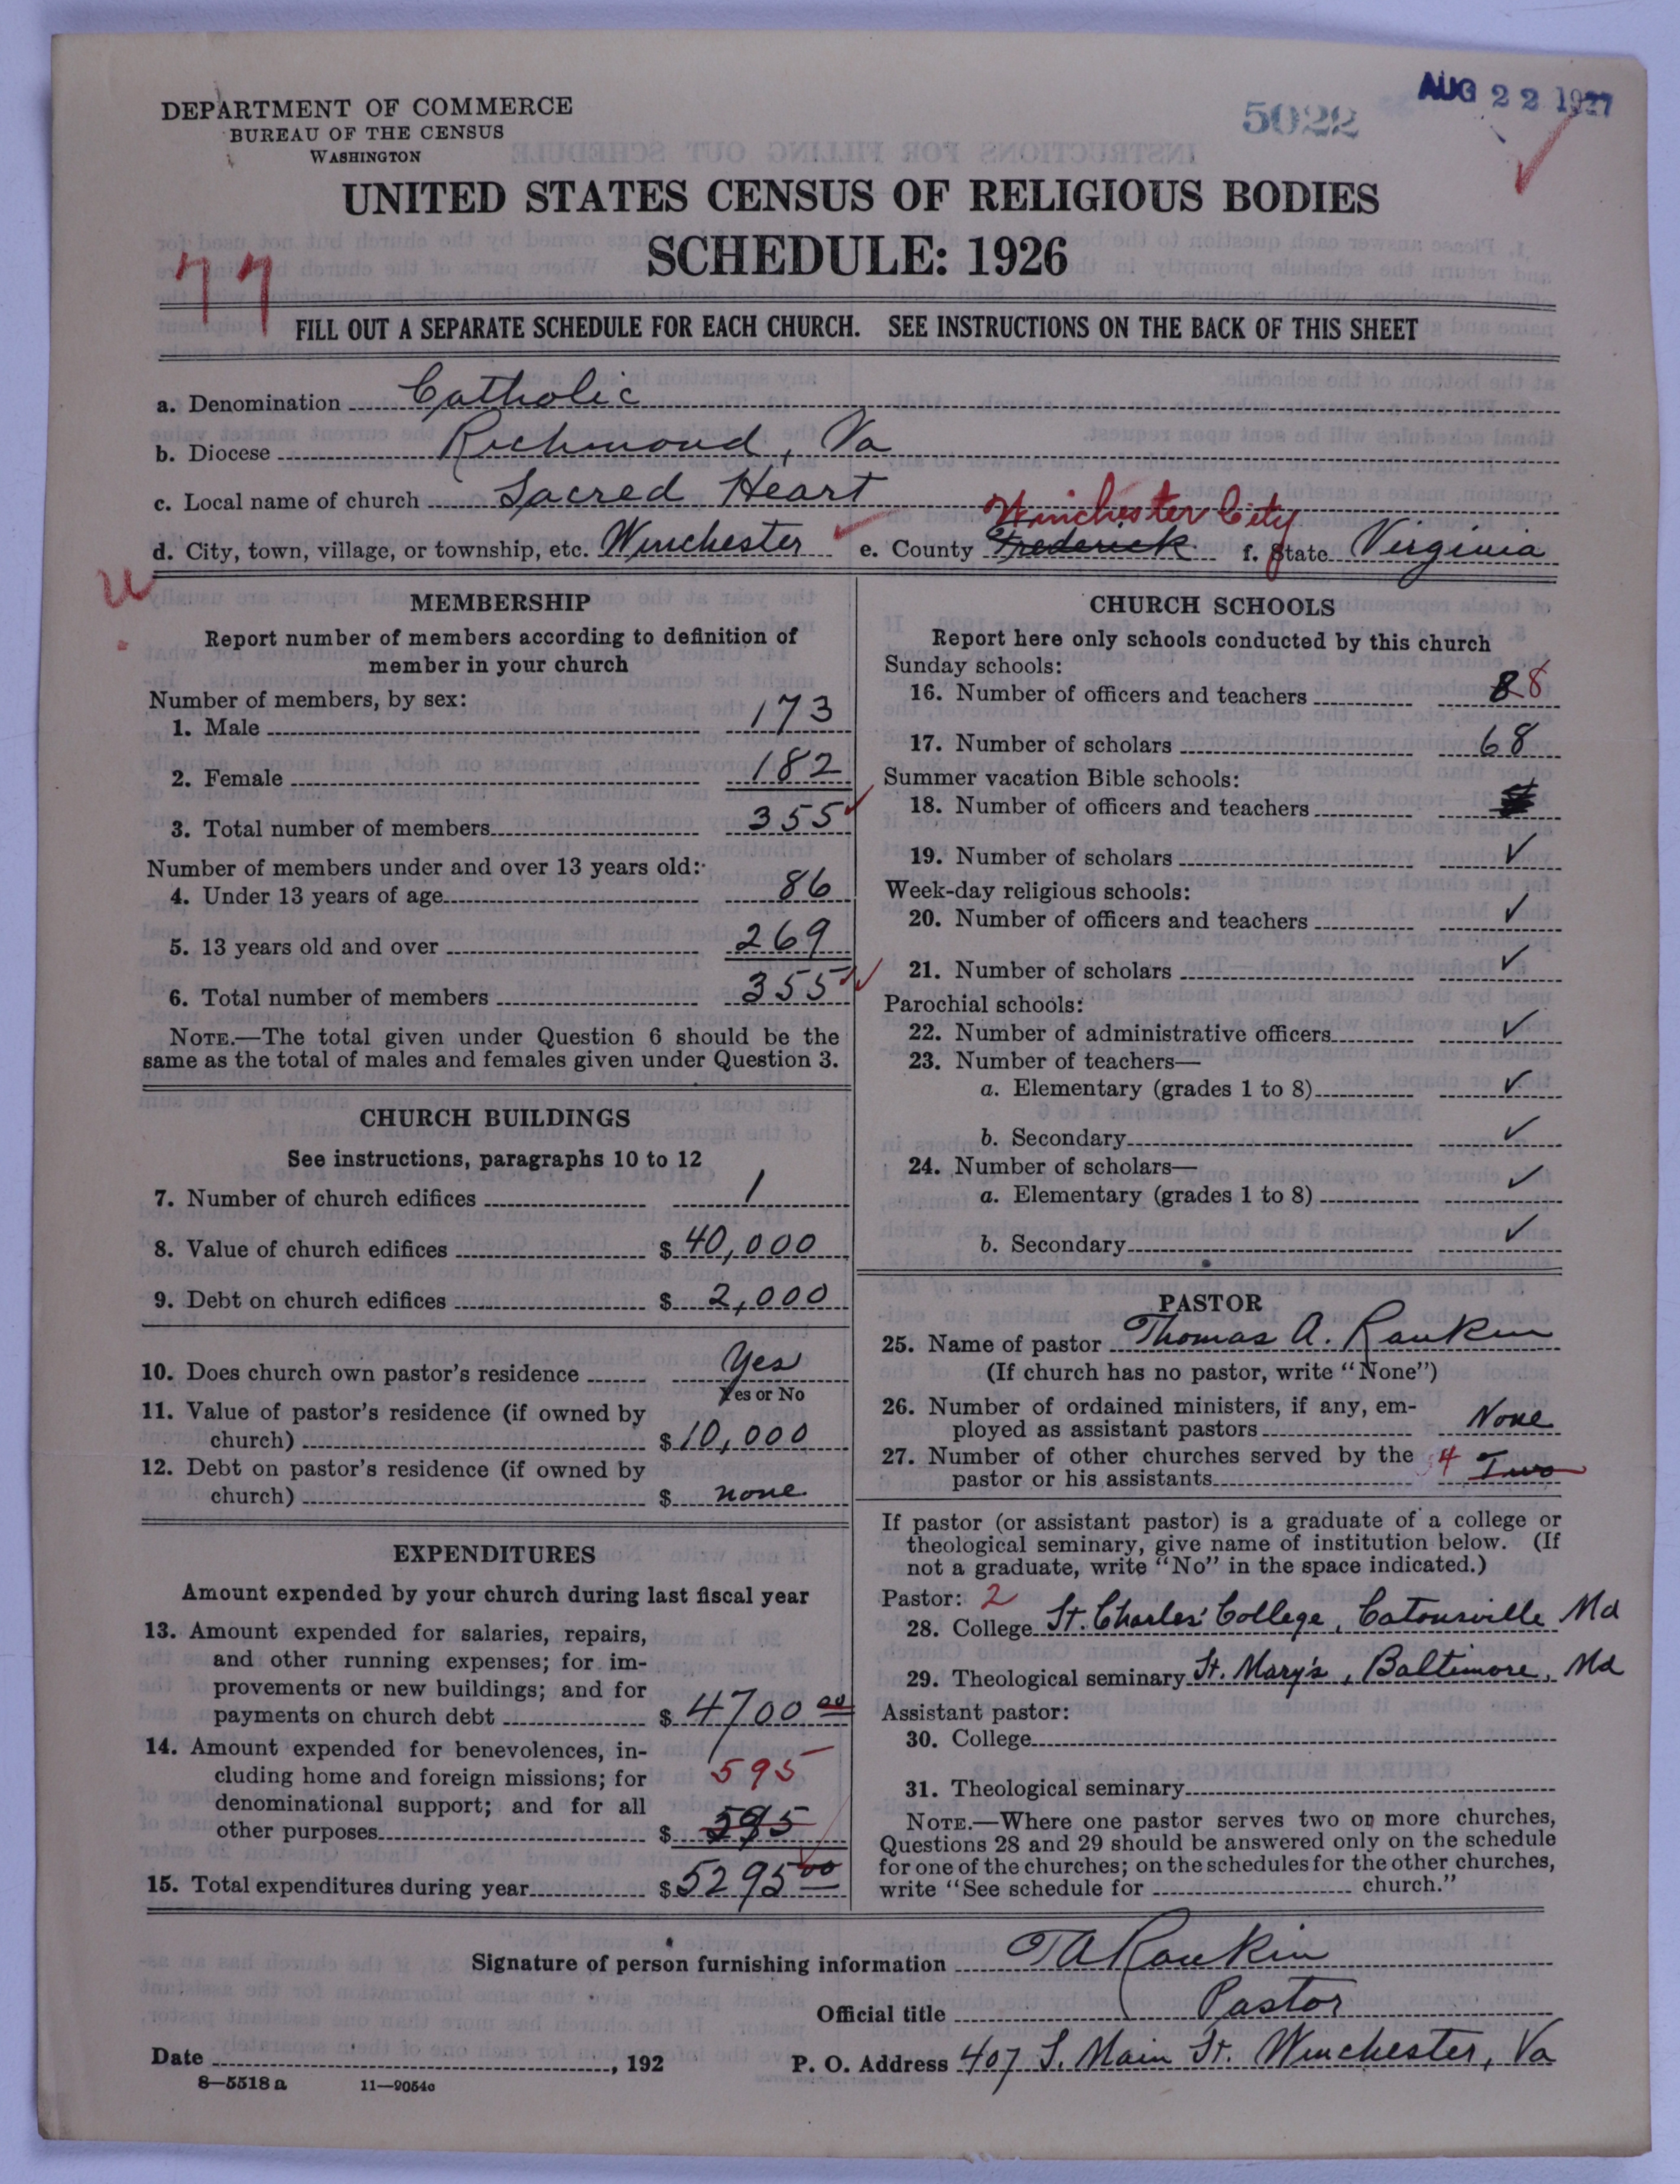 DEPARTMENT OF COMMERCE
BUREAU OF THE CENSUS
WASHINGTON
5022
AUG 22 1927
UNITED STATES CENSUS OF RELIGIOUS BODIES
SCHEDULE: 1926
77
FILL OUT A SEPARATE SCHEDULE FOR EACH CHURCH. SEE INSTRUCTIONS ON THE BACK OF THIS SHEET
a. Denomination Catholic
b. Diocese Richmond, Va
c. Local name of church Sacred Heart
Winchester City
d. City, town, village, or township, etc. Winchester e. County Frederick f. State Virginia
MEMBERSHIP
Report number of members according to definition of
member in your church
Number of members, by sex:
1. Male 173
2. Female 182
3. Total number of members 355
Number of members under and over 13 years old:
4. Under 13 years of age 86
5. 13 years old and over 269
6. Total number of members 355
NOTE.—The total given under Question 6 should be the
same as the total of males and females given under Question 3.
CHURCH BUILDINGS
See instructions, paragraphs 10 to 12
7. Number of church edifices 1
8. Value of church edifices $ 40,000
9. Debt on church edifices $ 2,000
10. Does church own pastor's residence Yes
Yes or No
11. Value of pastor's residence (if owned by
church) $ 10,000
12. Debt on pastor's residence (if owned by
church) $ none
EXPENDITURES
Amount expended by your church during last fiscal year
13. Amount expended for salaries, repairs,
and other running expenses; for im-
provements or new buildings; and for
payments on church debt $ 4700 00
14. Amount expended for benevolences, in-
cluding home and foreign missions; for 595
denominational support; and for all
other purposes $ 595
15. Total expenditures during year $ 5295 00
CHURCH SCHOOLS
Report here only schools conducted by this church
Sunday schools:
16. Number of officers and teachers 8 8
17. Number of scholars 68
Summer vacation Bible schools:
18. Number of officers and teachers
19. Number of scholars ✓
Week-day religious schools:
20. Number of officers and teachers ✓
21. Number of scholars ✓
Parochial schools:
22. Number of administrative officers ✓
23. Number of teachers—
a. Elementary (grades 1 to 8) ✓
b. Secondary ✓
24. Number of scholars—
a. Elementary (grades 1 to 8) ✓
b. Secondary ✓
PASTOR
25. Name of pastor Thomas A. Rankin
(If church has no pastor, write "None")
26. Number of ordained ministers, if any, em-
ployed as assistant pastors None
27. Number of other churches served by the
pastor or his assistants 4 Two
If pastor (or assistant pastor) is a graduate of a college or
theological seminary, give name of institution below. (If
not a graduate, write "No" in the space indicated.)
Pastor: 2
28. College St. Charles' College, Catonsville Md
29. Theological seminary St. Mary's, Baltimore, Md
Assistant pastor:
30. College
31. Theological seminary
NOTE.—Where one pastor serves two or more churches,
Questions 28 and 29 should be answered only on the schedule
for one of the churches; on the schedules for the other churches,
write "See schedule for church."
Signature of person furnishing information T A Rankin
Official title Pastor
Date , 192 P. O. Address 407 S. Main St. Winchester, Va
8—5518 a 11—9054c